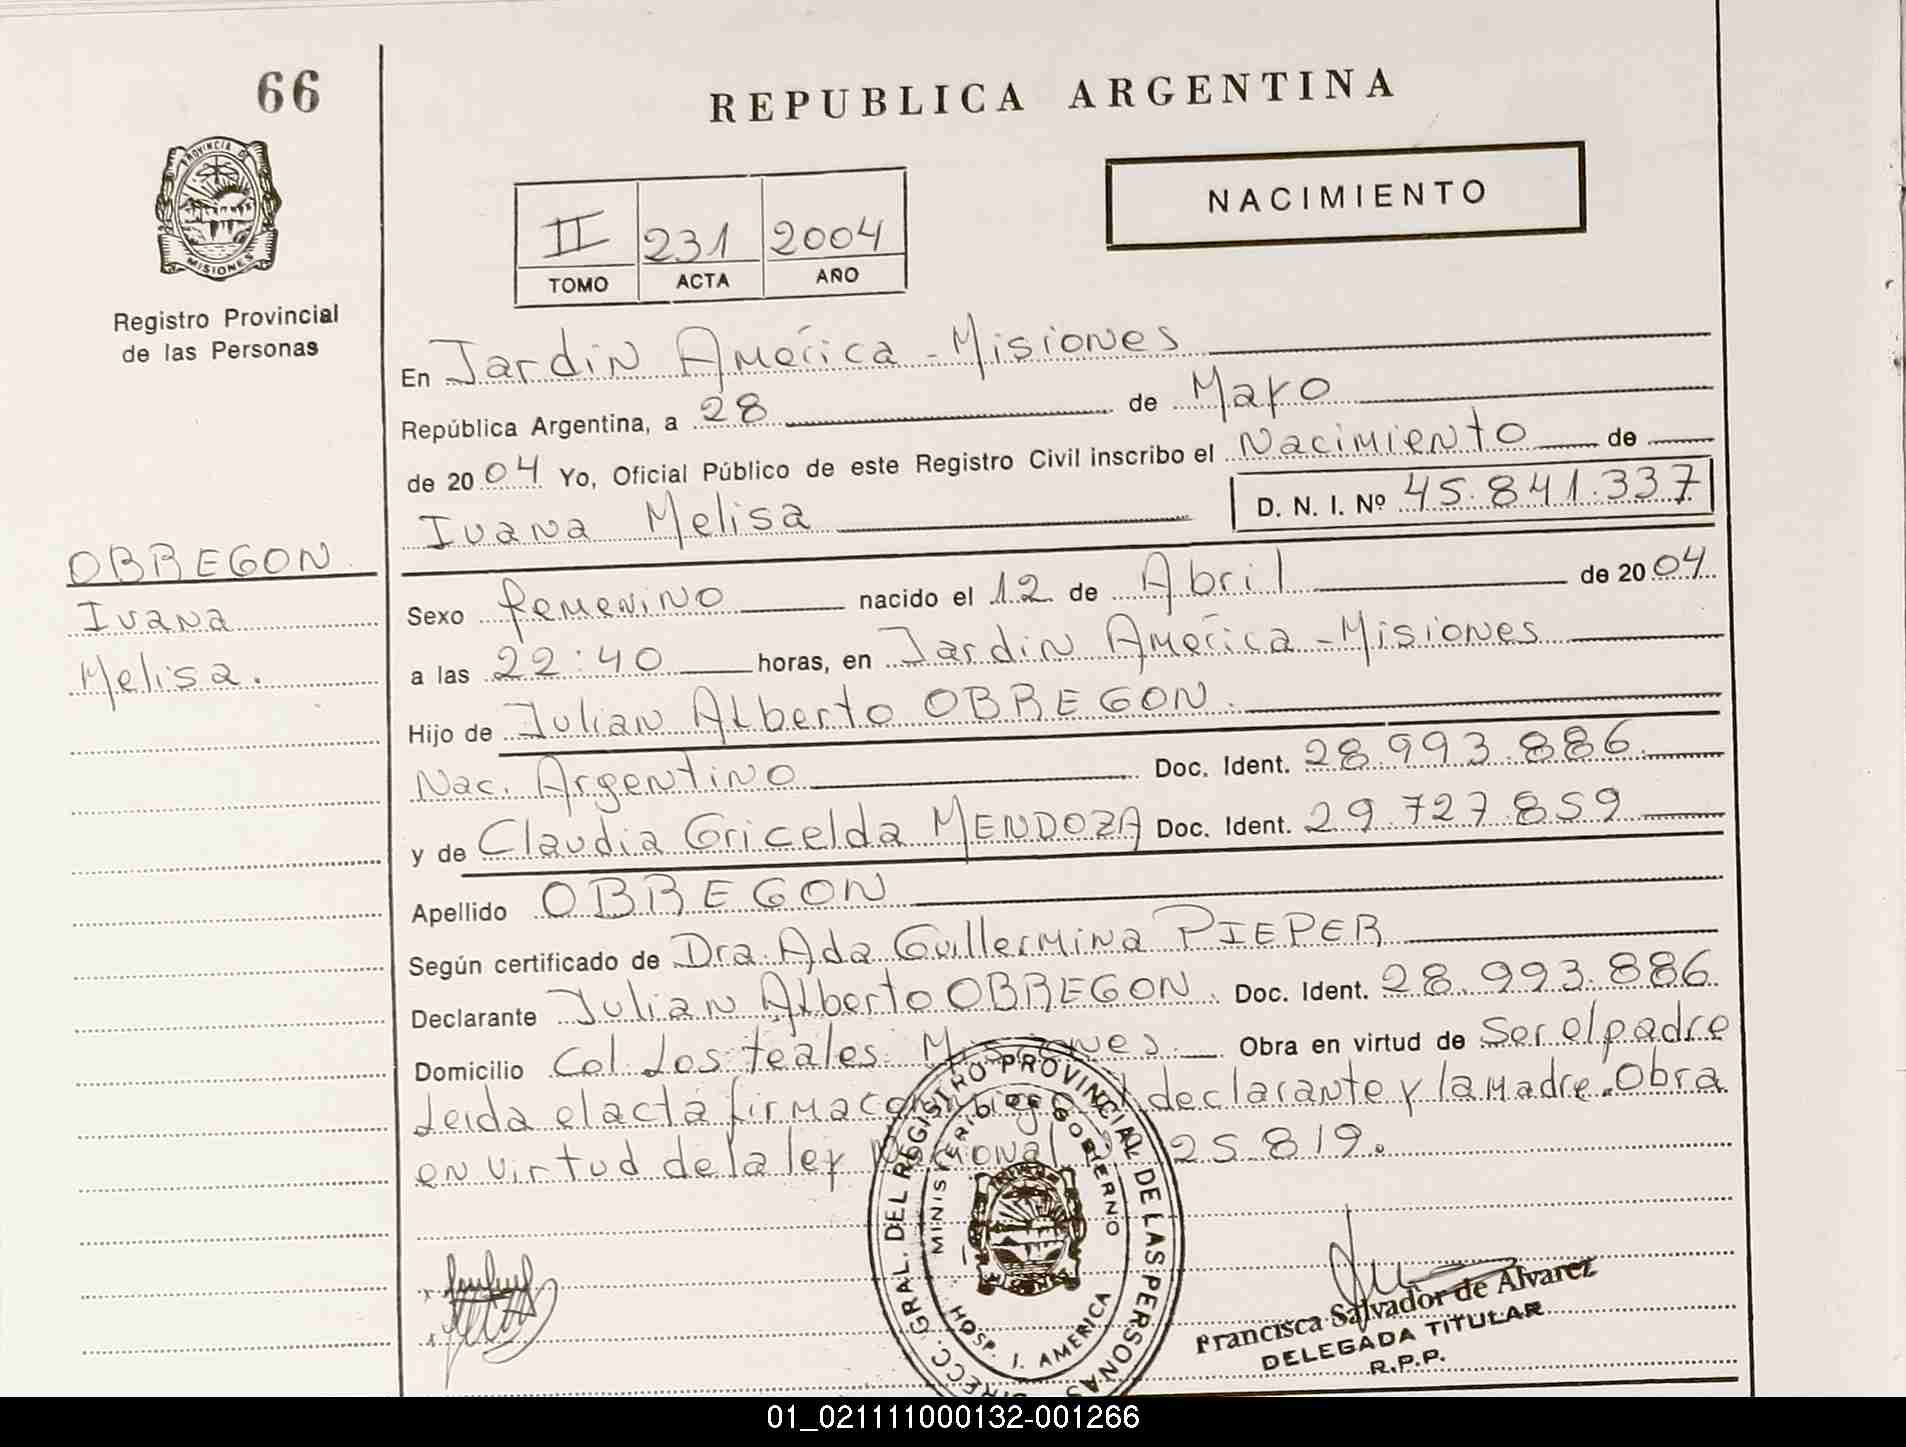 66
REPUBLICA ARGENTINA
PROVINCIA DE
MISIONES
Registro Provincial
de las Personas
NACIMIENTO
II 231 2004
TOMO ACTA AÑO
En Jardin América - Misiones
República Argentina, a 28 de Mayo
de 2004 Yo, Oficial Público de este Registro Civil inscribo el Nacimiento de
Ivana Melisa D. N. I. Nº 45.841.337
OBREGON
Ivana
Melisa.
Sexo femenino nacido el 12 de Abril de 2004
a las 22:40 horas, en Jardin América - Misiones
Hijo de Julian Alberto OBREGON.
Nac. Argentino Doc. Ident. 28.993.886.
y de Claudia Gricelda MENDOZA Doc. Ident. 29.727.859
Apellido OBREGON
Según certificado de Dra. Ada Guillermina PIEPER
Declarante Julian Alberto OBREGON. Doc. Ident. 28.993.886
Domicilio Col. Los teales. Misiones. Obra en virtud de Ser el padre
Leida el acta firma conmigo el declarante y la Madre. Obra
en virtud de la ley Nacional 25.819.
DIRECC. GRAL. DEL REGISTRO PROVINCIAL DE LAS PERSONAS
MINISTERIO DE GOBIERNO
HOSP. J. AMERICA
Francisca Salvador de Alvarez
DELEGADA TITULAR
R.P.P.
01_021111000132-001266